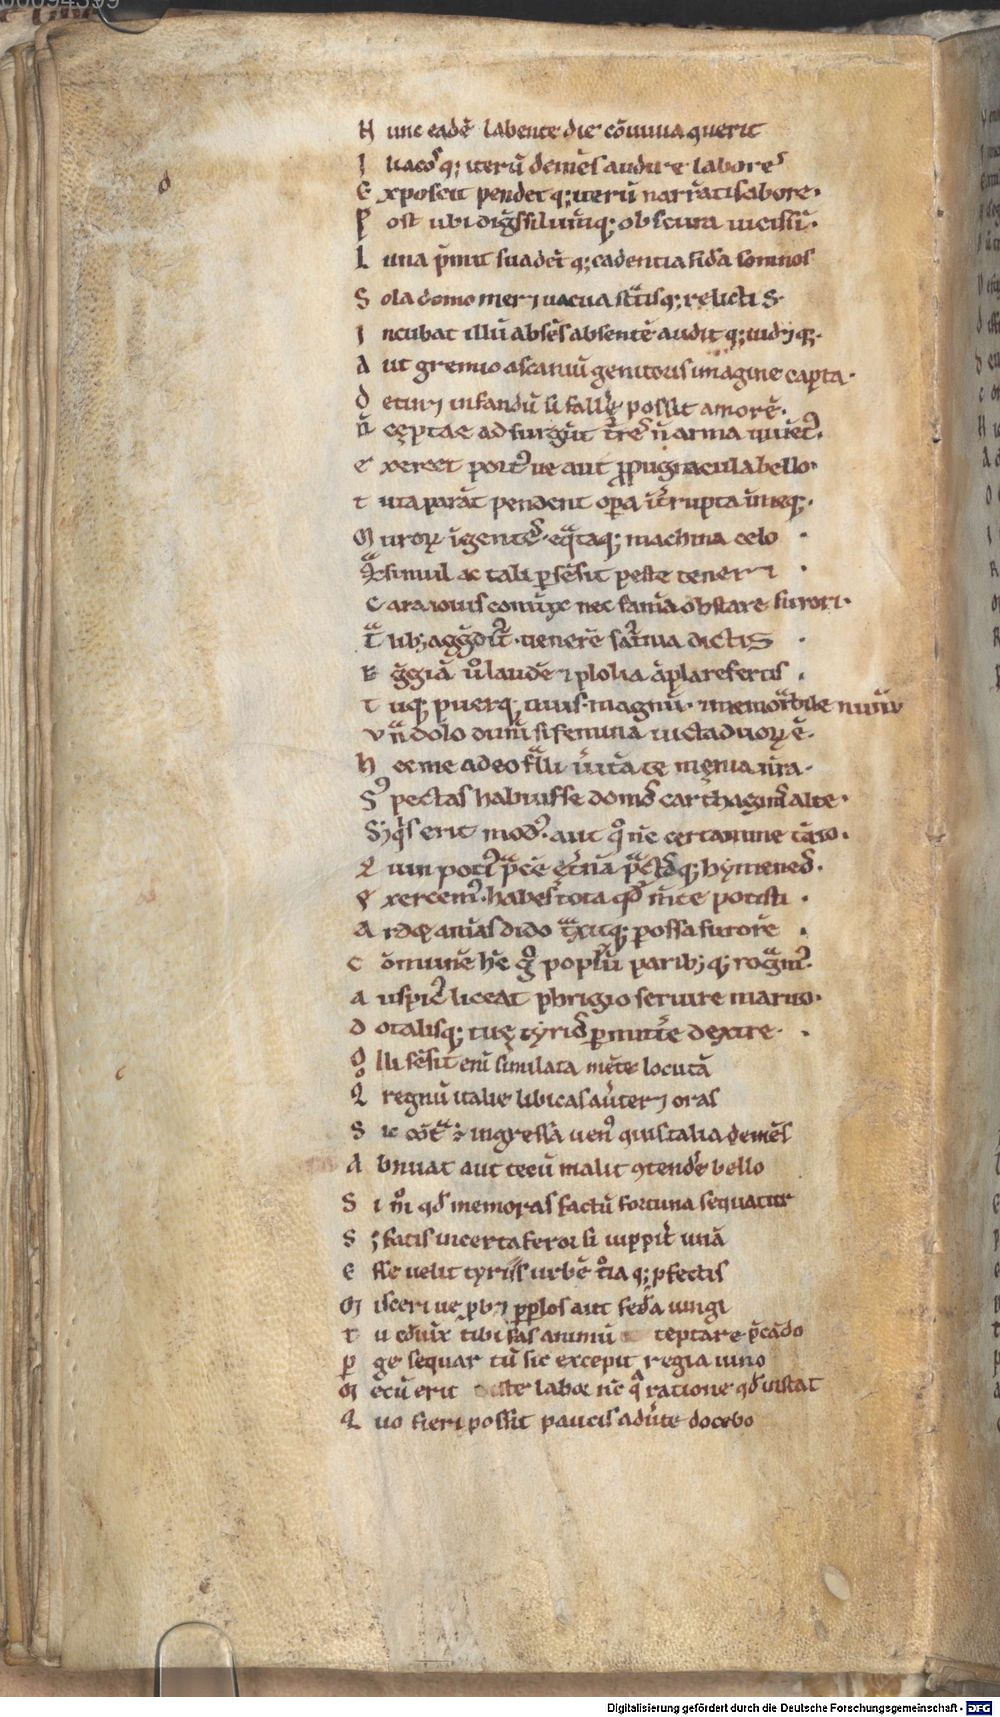 00094399
H unc eadē labente die cōuiuia querit
I liacosq; iterū demēs audire labores
E xposcit pendetq; iterū narrātis ab ore.
P ost ubi digssi lumq; obscura uicissī.
L una p̄mit suadētq; cadentia sida somnos
S ola domo mer⁊ uacua st̄tisq; relictis.
I ncubat illū absēs absentē auditq; uid⁊q;.
A ut gremio ascaniū genitoris imagine capta.
D etin⁊ infandū si fallẽ possit amorē.
ñ cęptae adsurgūt t̄res ñ arma iuuēt᷒.
e xercet port᷒ue aut ꝓpugnacula bello.
t uta parāt pendent oꝑa īt̄rupta mīeq;.
M uroꝝ īgentes. eq̄taq; machina celo .
Qͣ simul ac tali ꝑsēsit peste teneri .
C ara iouis coniūx nec famā obstare furori.
T alib; aggͣdit᷑. uenerē sat̄nia dictis .
E gͣgiā uͦ laudē ⁊ spolia āpla refertis .
T uq; puerq; tuus. magnū. ⁊ memorͣbile numͫ
V nͣ dolo diuū si femina uicta duoꝝ ē.
H ec me adeo fͣlli uͥita te męnia nr̄a.
S᷒pectas habuisse domos carthaginis alte.
S; qͥs erit mod᷒. aut qͦ nc̄ certamine tāto.
Q uin poti᷒ pͣcē et̄nā pͣctosq; hymeneos.
E xercem᷒. habes tota qd̄ mēte petisti .
A rdęt amās dido tͣxitq; ꝑ ossa furorē .
C ōmunē hc̄ gͦ poplū̄ parib;q; regͣm᷒.
A uspiciis liceat phrigio seruire marito.
D otalisq; tuę tyrios ꝑmittẽ dextre. .
O lli sēsit eni simulata mēte locutā
Qͦ regnū italie libicas aūter⁊ oras
S ic cōtͣ ē ingressa uen᷒ quis talia demēs
A bnuat aut tecū malit ꝯtendẽ bello
S i mͦ qd̄ memoras factū fortuna sequatur
S ; fatis incerta feror si iuppit̄ unā
E sse uelit tyriis urbē tͦiaq; ꝓfectis
M isceriue ꝓb⁊ pp̄los aut fedẽa iungi
T u cōiūx tibi fas animū teptare p̄cādo
P ge sequar tū sic excepit regia iuno
M ecū erit iste labor nc̄ qͣ ratione qd̄ instat
Q uo fieri possit paucis aduͥte docebo
Digitalisierung gefördert durch die Deutsche Forschungsgemeinschaft - DFG